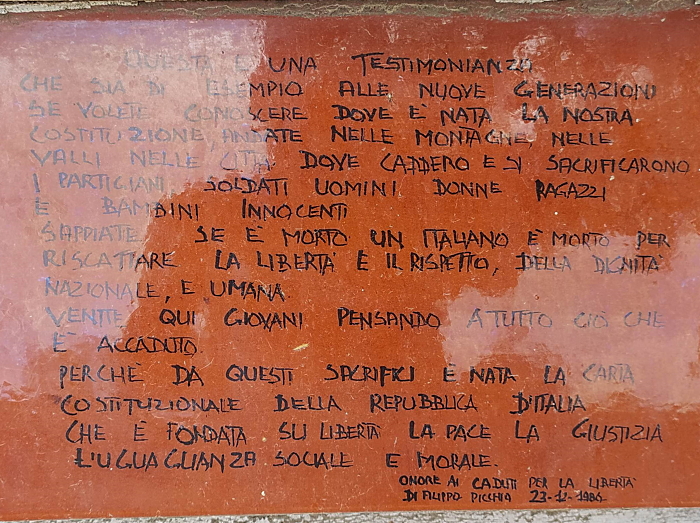 QUESTA E UNA TESTIMONIANZA
CHE SIA DI ESEMPIO ALLE NUOVE GENERAZIONI
SE VOLETE CONOSCERE DOVE È NATA LA NOSTRA
COSTITUZIONE ANDATE NELLE MONTAGNE, NELLE
VALLI NELLE CITTA DOVE CADDERO E SI SACRIFICARONO
I PARTIGIANI SOLDATI UOMINI DONNE RAGAZZI
E BAMBINI INNOCENTI
SAPPIATE SE È MORTO UN ITALIANO È MORTO PER
RISCATTARE LA LIBERTA' E IL RISPETTO, DELLA DIGNITA'
NAZIONALE, E UMANA.
VENITE QUI GIOVANI PENSANDO A TUTTO CIÒ CHE
È ACCADUTO.
PERCHÈ DA QUESTI SACRIFICI È NATA LA CARTA
COSTITUZIONALE DELLA REPUBBLICA D'ITALIA
CHE È FONDATA SU LIBERTA' LA PACE LA GIUSTIZIA
L'UGUAGLIANZA SOCIALE E MORALE.
ONORE AI CADUTI PER LA LIBERTA'
DI FILIPPO PICCHIA 23-12-1986